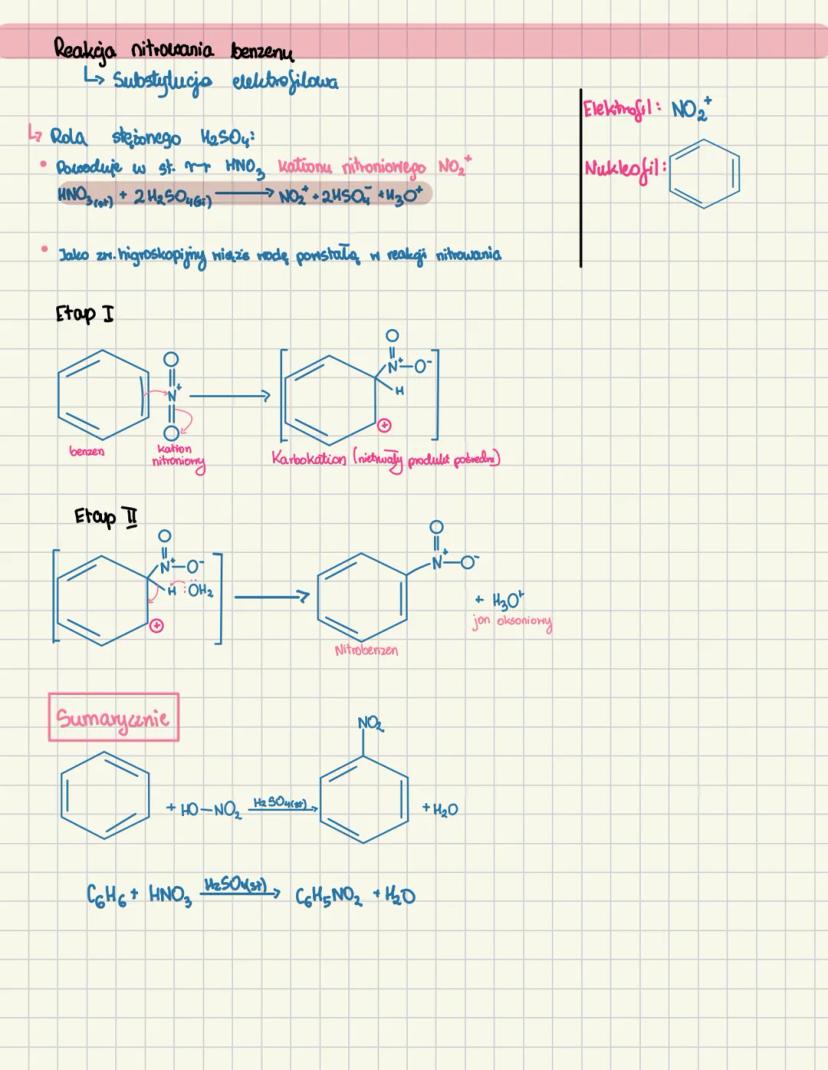 Reakcja nitrowania benzenu
↳ Substytucja elektrofilowa
Elektrofil: NO₂⁺
Nukleofil:
↳ Rola stężonego H₂SO₄:
• Powoduje w st. HNO₃ kationu nitroniowego NO₂⁺
HNO₃(st) + 2H₂SO₄(st) ⟶ NO₂⁺ + 2HSO₄⁻ + H₃O⁺
• Jako zw. higroskopijny wiąże wodę powstałą w reakcji nitrowania
Etap I
O
N⁺
O
O
N⁺–O⁻
H
⊕
benzen
kation nitroniowy
Karbokation (nietrwały produkt pośredni)
Etap II
O
N⁺–O⁻
H :ÖH₂
⊕
O
N⁺–O⁻
+ H₃O⁺
jon oksoniowy
Nitrobenzen
Sumarycznie
NO₂
+ HO–NO₂ H₂SO₄(st) ⟶ + H₂O
C₆H₆ + HNO₃ H₂SO₄(st) ⟶ C₆H₅NO₂ + H₂O